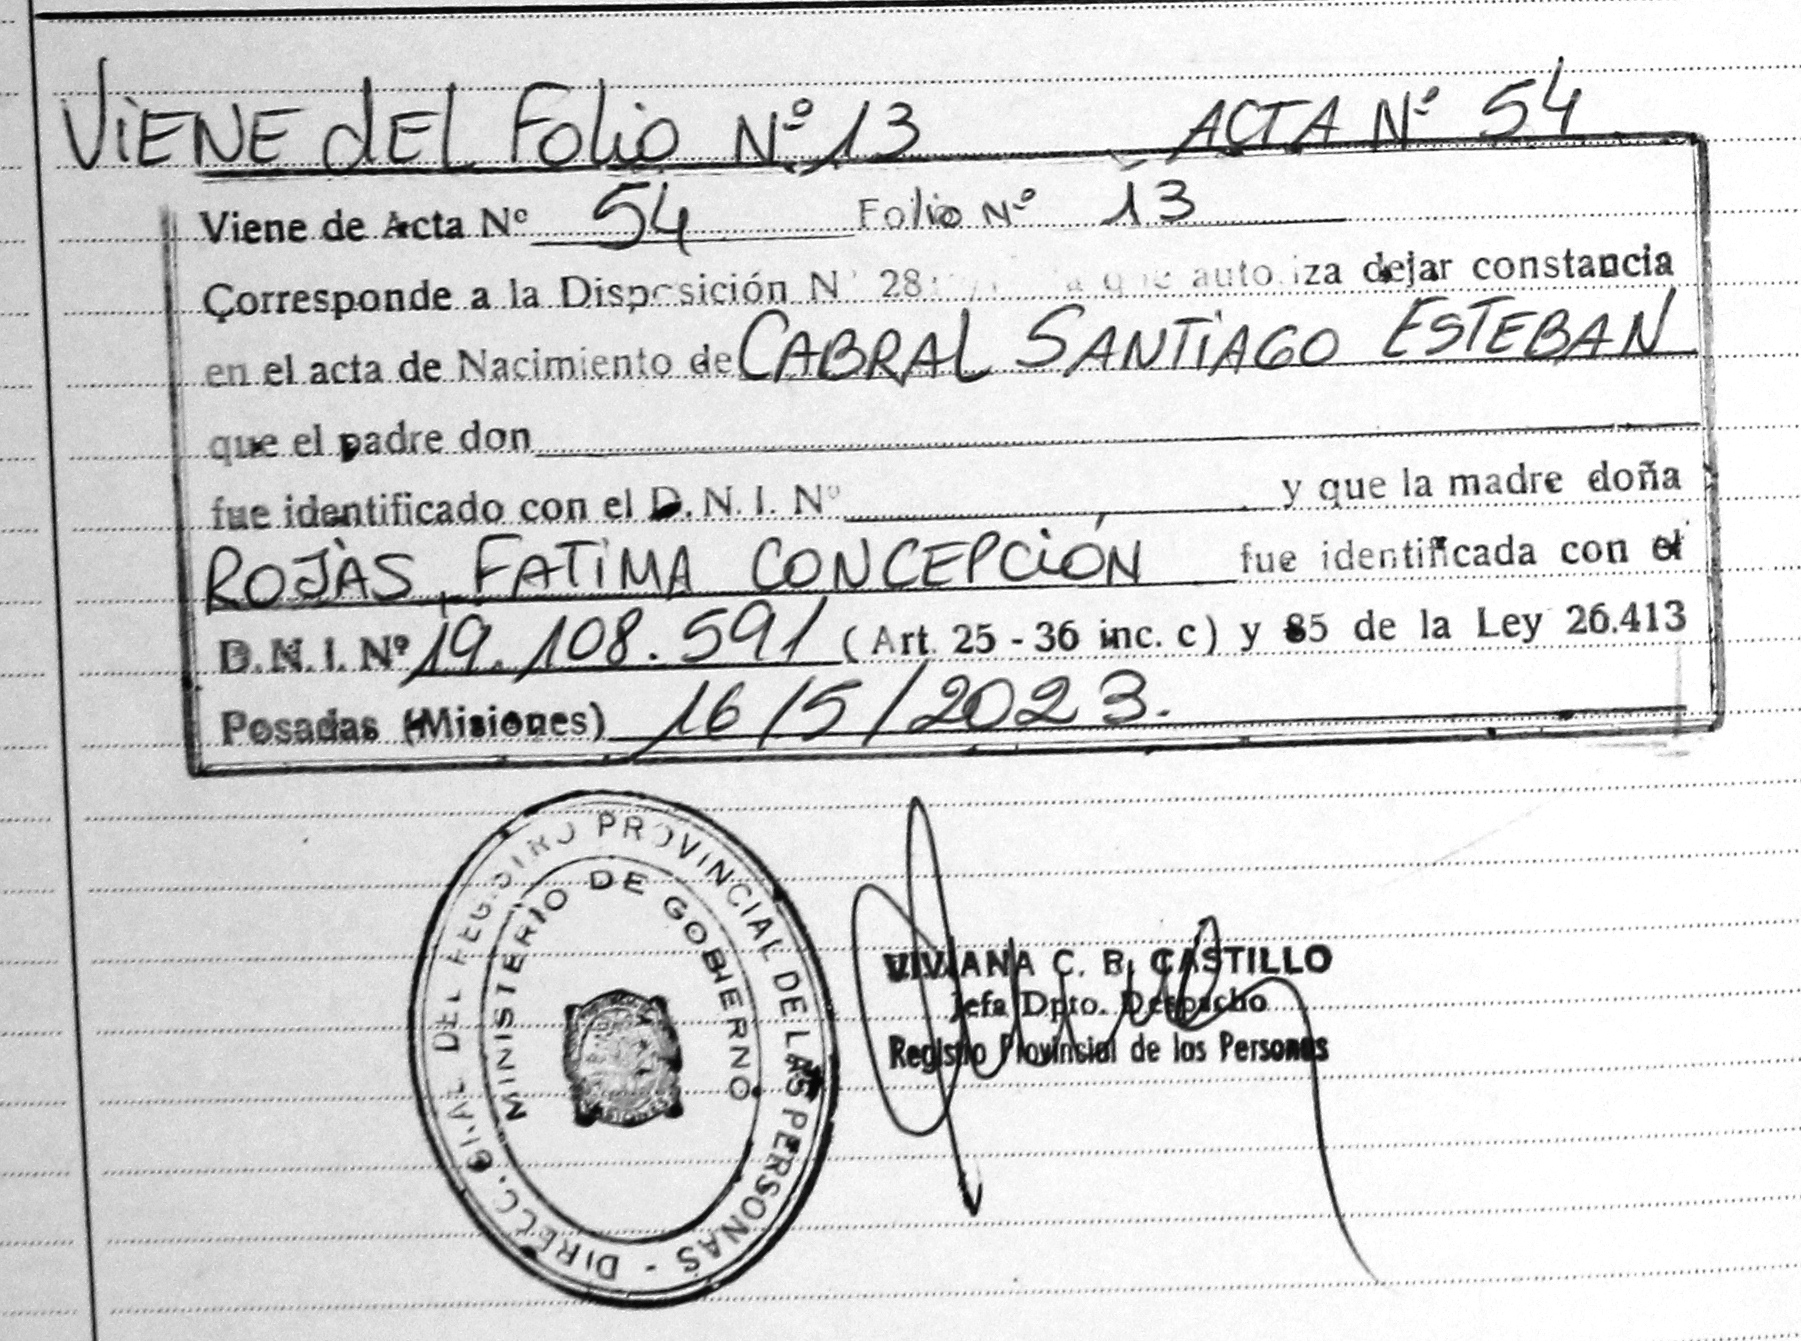 ViENE dEL Folio Nº 13 ACTA Nº 54
Viene de Acta Nº 54 Folio Nº 13
Corresponde a la Disposición N 28 que autoriza dejar constancia
en el acta de Nacimiento de CABRAL SANTiAGO ESTEBAN
que el padre don
fue identificado con el D.N.I. Nº y que la madre doña
ROJAS, FATiMA CONCEPCiÓN fue identificada con el
D.N.I. Nº 19.108.591 (Art. 25 - 36 inc. c) y 85 de la Ley 26.413
Posadas (Misiones) 16/5/2023.
DIRECC. GRAL DEL REGISTRO PROVINCIAL DE LAS PERSONAS -
MINISTERIO DE GOBIERNO
VIVIANA C. B. CASTILLO
Jefa Dpto. Despacho
Registro Provincial de las Personas